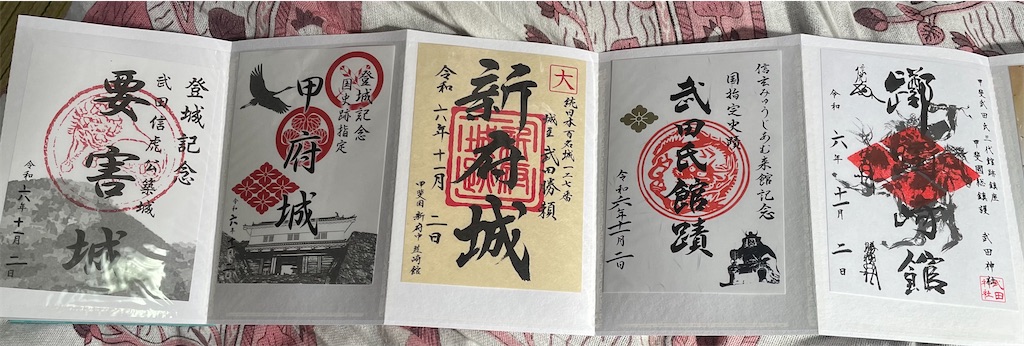 登城記念
武田信虎公築城
要害城
令和六年十一月二日
登城記念
国史跡指定
甲府城
令和六
大
続日本百名城一二七番
城主 武田勝頼
新府城
令和 六年十一月 二日
甲斐国 新府中 韮崎館
信玄みゅうじあむ来館記念
国指定史蹟
武田氏館蹟
令和六年十一月二日
甲斐武田氏三代館跡鎮座
甲斐國総鎮護
武田神社
武田神社
館
令和 六年 十一月 二日